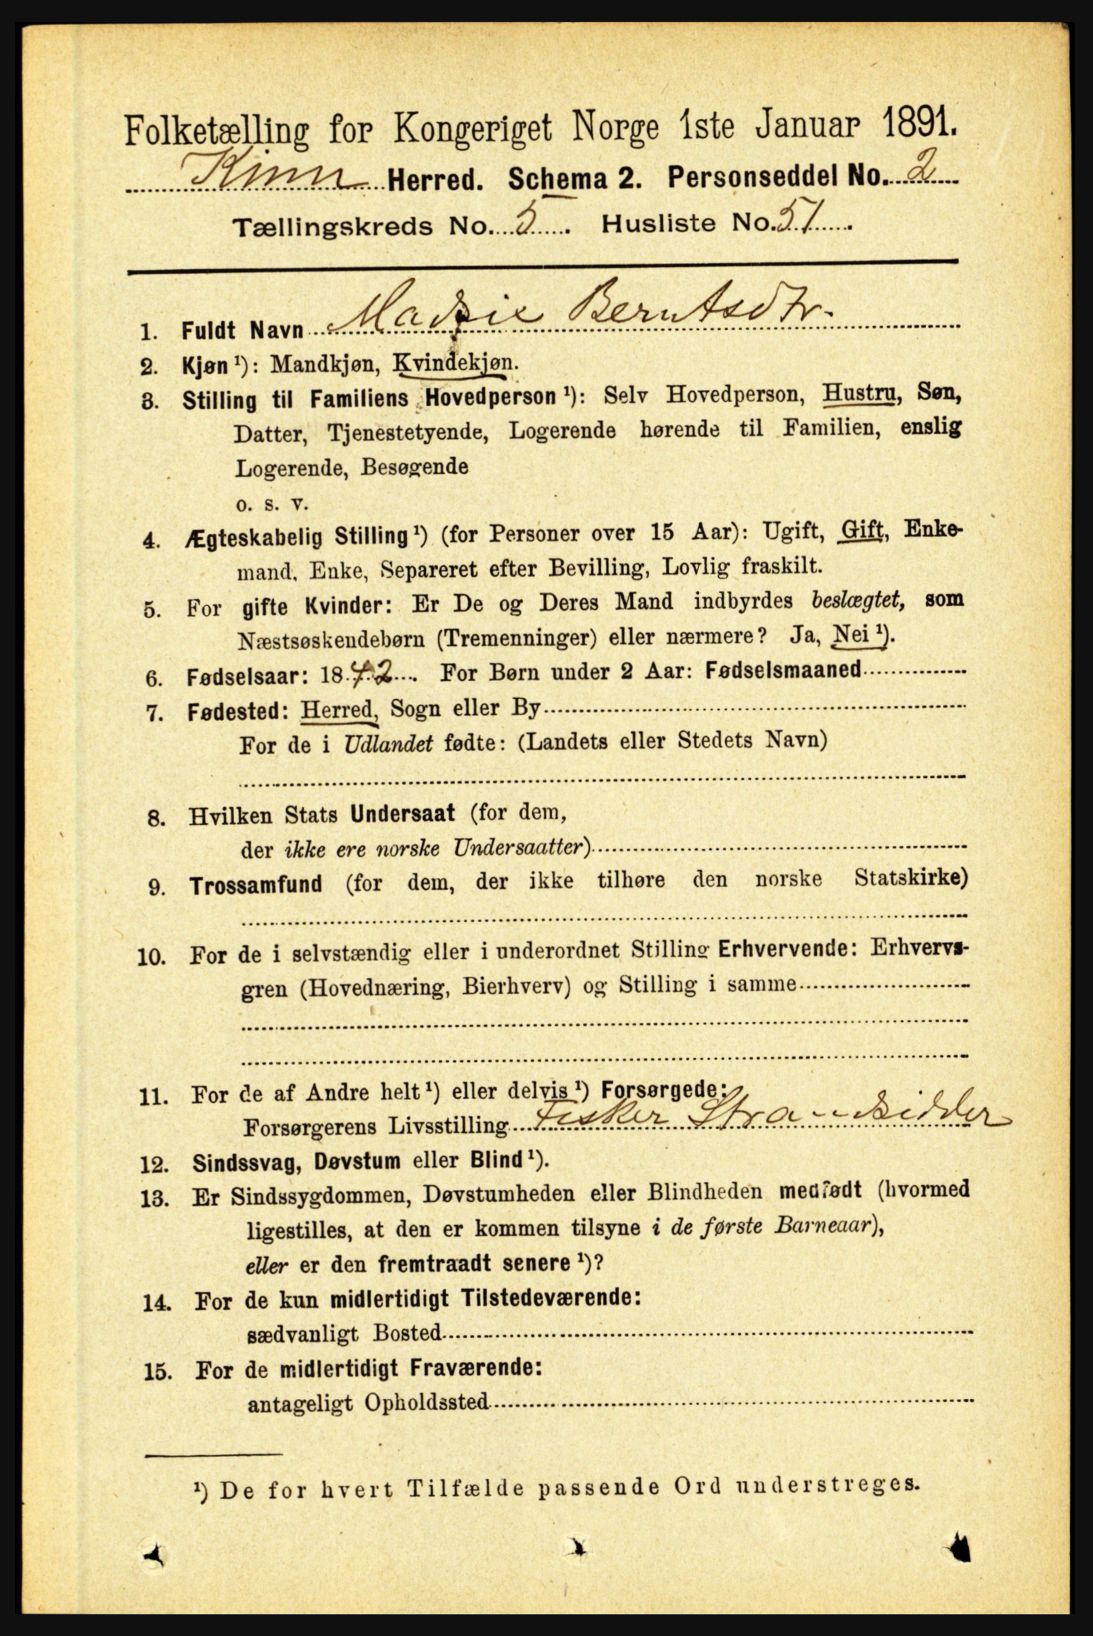 Folketælling for Kongeriget Norge 1ste Januar 1891.
Kinn Herred. Schema 2. Personseddel No. 2
Tællingskreds No. 5. Husliste No. 51.
1. Fuldt Navn Berntsdtr.
2. Kjøn ¹): Mandkjøn, Kvindekjøn.
3. Stilling til Familiens Hovedperson ¹): Selv Hovedperson, Hustru, Søn,
Datter, Tjenestetyende, Logerende hørende til Familien, enslig
Logerende, Besøgende
o. s. v.
4. Ægteskabelig Stilling ¹) (for Personer over 15 Aar): Ugift, Gift, Enke-
mand, Enke, Separeret efter Bevilling, Lovlig fraskilt.
5. For gifte Kvinder: Er De og Deres Mand indbyrdes beslægtet, som
Næstsøskendebørn (Tremenninger) eller nærmere? Ja, Nei ¹).
6. Fødselsaar: 1842. For Børn under 2 Aar: Fødselsmaaned
7. Fødested: Herred, Sogn eller By
For de i Udlandet fødte: (Landets eller Stedets Navn)
8. Hvilken Stats Undersaat (for dem,
der ikke ere norske Undersaatter)
9. Trossamfund (for dem, der ikke tilhøre den norske Statskirke)
10. For de i selvstændig eller i underordnet Stilling Erhvervende: Erhvervs-
gren (Hovednæring, Bierhverv) og Stilling i samme
11. For de af Andre helt ¹) eller delvis ¹) Forsørgede:
Forsørgerens Livsstilling Fisker Strandsidder
12. Sindssvag, Døvstum eller Blind ¹).
13. Er Sindssygdommen, Døvstumheden eller Blindheden medfødt (hvormed
ligestilles, at den er kommen tilsyne i de første Barneaar),
eller er den fremtraadt senere ¹)?
14. For de kun midlertidigt Tilstedeværende:
sædvanligt Bosted
15. For de midlertidigt Fraværende:
antageligt Opholdssted
¹) De for hvert Tilfælde passende Ord understreges.